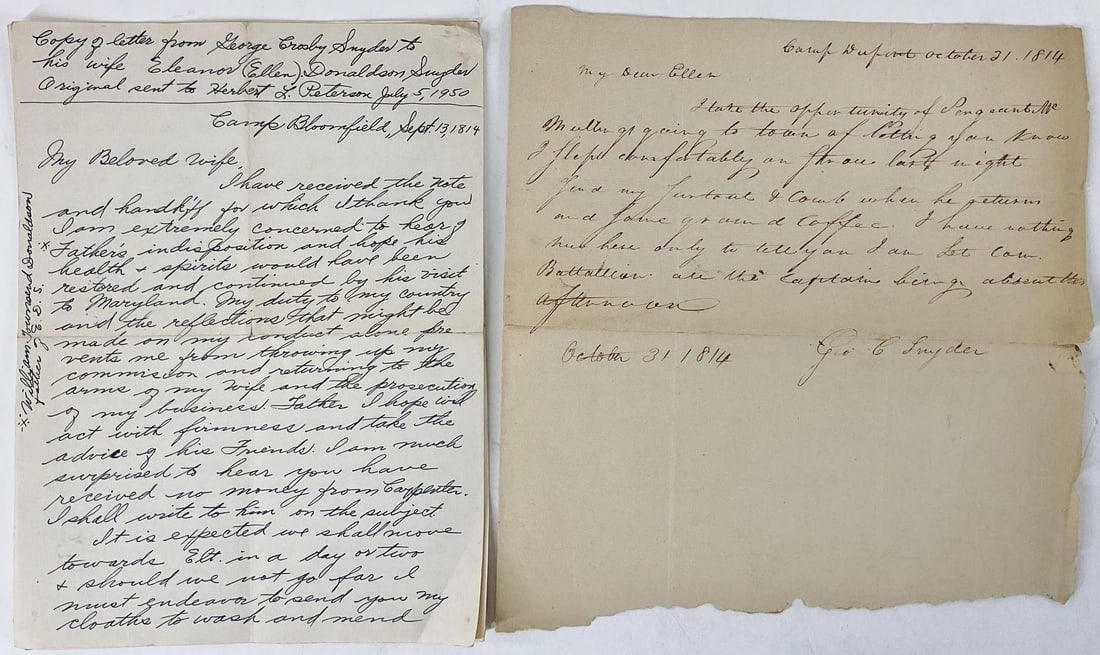 Copy of letter from George Crosby Snyder to
his wife Eleanor (Ellen) Donaldson Snyder
Original sent to Herbert L. Peterson July 5, 1950
Camp Bloomfield, Sept. 13, 1814
My Beloved Wife,
I have received the note
and handk'fs for which I thank you
I am extremely concerned to hear of
* Father's indisposition and hope his
health & spirits would have been
restored and continued by his visit
to Maryland. My duty to my country
and the reflections that might be
made on my conduct alone pre
vents me from throwing up my
commission and returning to the
arms of my wife and the prosecution
of my business. Father I hope will
act with firmness and take the
advice of his Friends. I am much
surprised to hear you have
received no money from Carpenter.
I shall write to him on the subject
It is expected we shall move
towards Elt. in a day or two
& should we not go far I
must endeavor to send you my
cloaths to wash and mend
* William Townsend Donaldson
father of E.D.S.
Camp Dupont October 31. 1814
My Dear Ellen
I take the opportunity of Sergeant Mc
going to town of letting you know
I slept comfortably on straw last night
Send my Surtout & Comb when he returns
and some ground Coffee. I have nothing
new here only to tell you I am Com.
Battallion all the Captains being absent this
afternoon
October 31 1814
Geo C Snyder